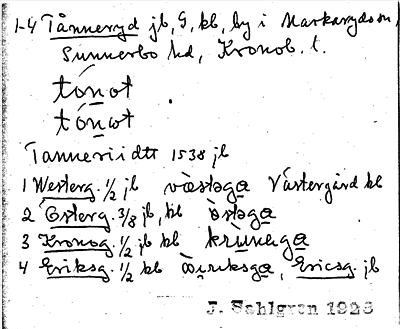 1-4 Tånneryd jb, G, kb, by i Markaryds sn,
Sunnerbo hd, Kronob. l.
tónot
tónωt
Tanneri i dtt 1538 jb
1 Westerg. 1/2 jb væstəga Västergård kb
2 Österg. 3/8 jb, kb östəga
3 Kronog. 1/2 jb kb
4 Eriksg. 1/2 kb Ericsg. jb
J. Sahlgren 1926